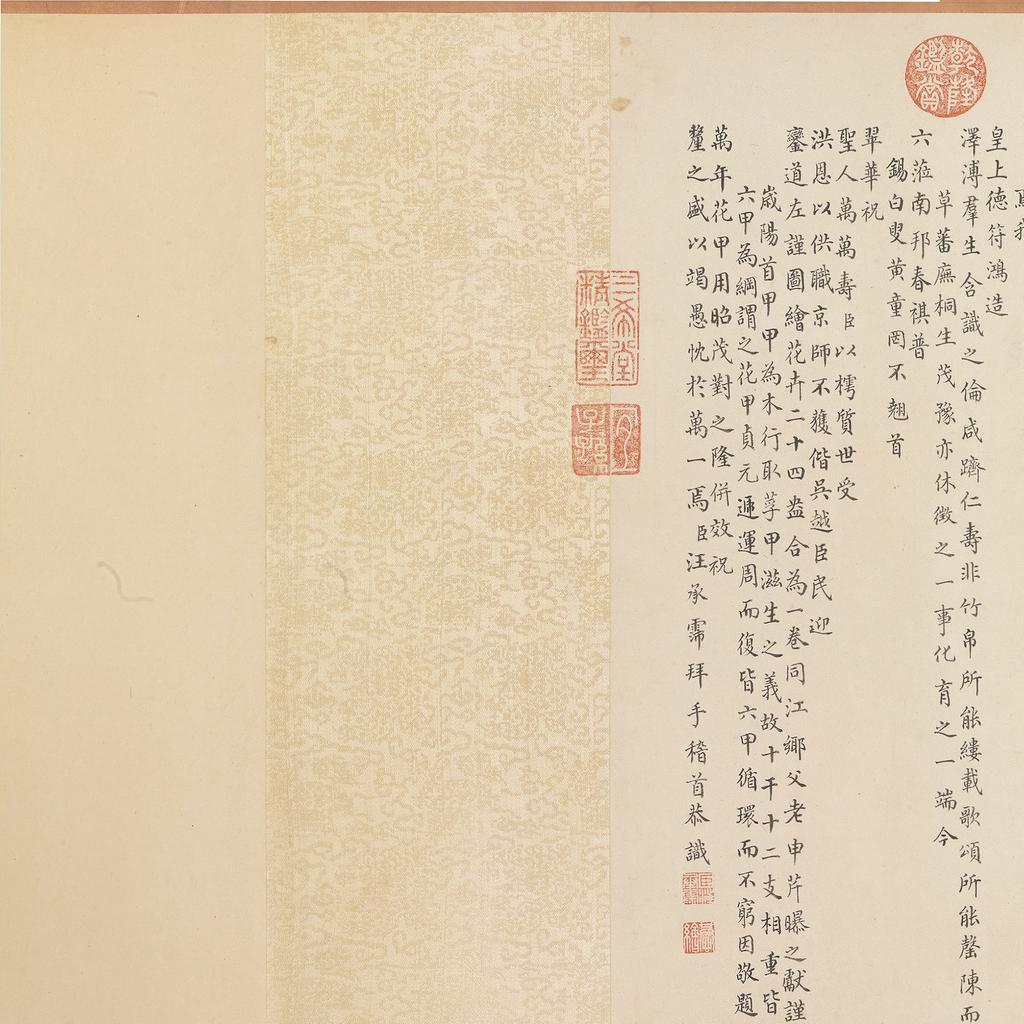 皇上德符鴻造
澤溥羣生含識之倫咸躋仁壽非竹帛所能縷載歌頌所能罄陳而
草蕃廡桐生茂豫亦休徵之一事化育之一端今
六蒞南邦春祺普
錫白叟黃童罔不翹首
翠華祝
聖人萬萬壽臣以樗質世受
洪恩以供職京師不獲偕吳越臣民迎
鑾道左謹圖繪花卉二十四盎合為一卷同江鄉父老申芹曝之獻謹
歲陽首甲甲為木行取莩甲滋生之義故十干十二支相重皆
六甲為綱謂之花甲貞元遞運周而復皆六甲循環而不窮因敬題
萬年花甲用昭茂對之隆併效祝
釐之盛以竭愚忱於萬一焉臣汪承霈拜手稽首恭識
乾隆鑑賞
三希堂精鑑璽
宜子孫